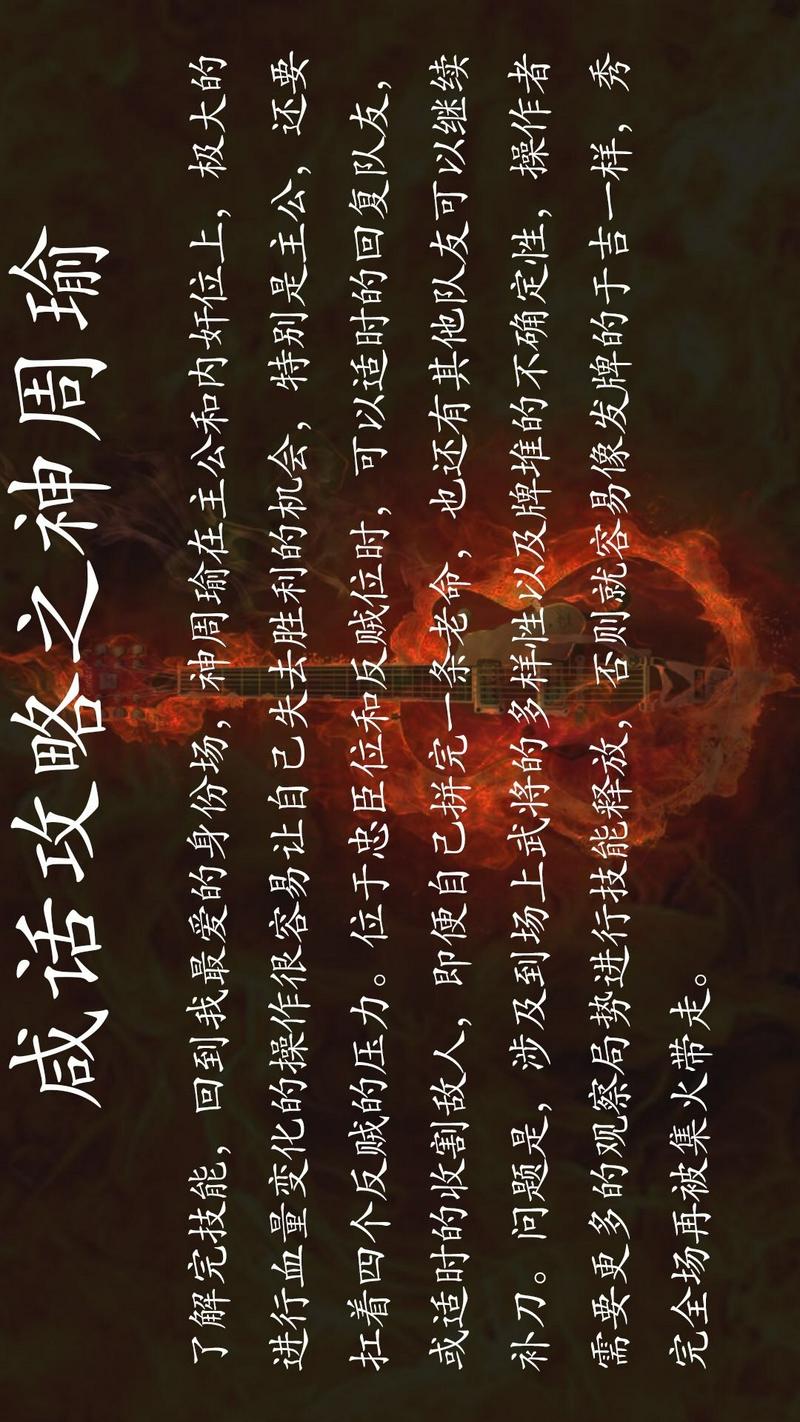 咸话攻略之神周瑜
了解完技能，回到我最爱的身份场，神周瑜在主公和内奸位上，极大的
进行血量变化的操作很容易让自己失去胜利的机会，特别是主公，还要
扛着四个反贼的压力。位于忠臣位和反贼位时，可以适时的回复队友，
或适时的收割敌人，即便自己拼完一条老命，也还有其他队友可以继续
补刀。问题是，涉及到场上武将的多样性以及牌堆的不确定性，操作者
需要更多的观察局势进行技能释放，否则就容易像发牌的于吉一样，秀
完全场再被集火带走。